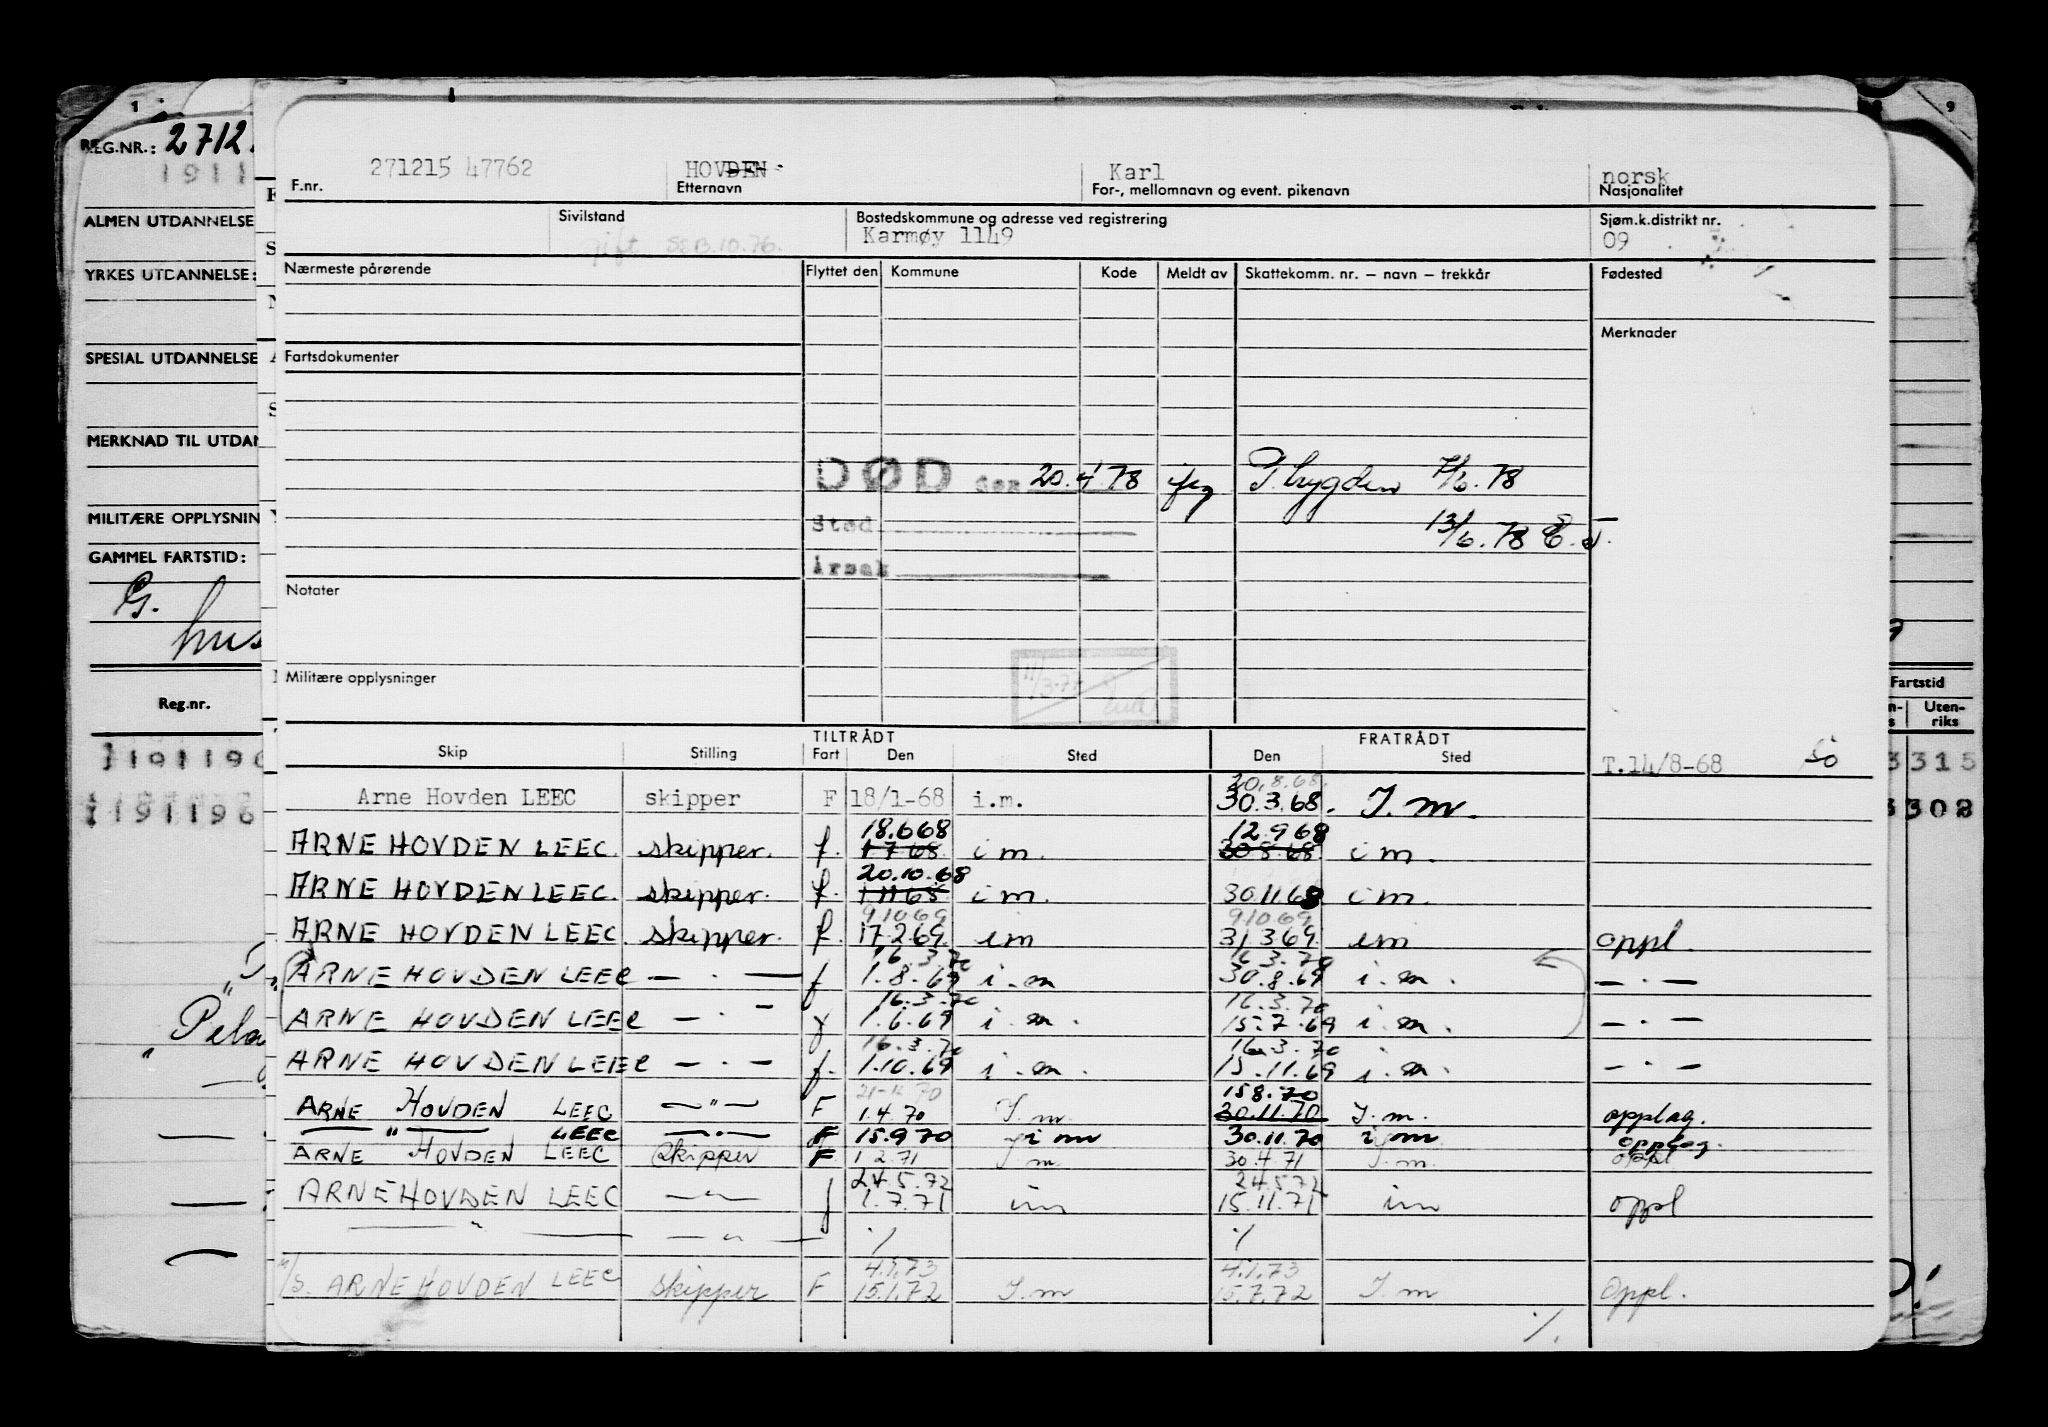 1
9
REG.NR.: 2712
1911
271215 47762 HOVDEN Karl norsk
F.nr. Etternavn For-, mellomnavn og event. pikenavn Nasjonalitet
ALMEN UTDANNELSE
Sivilstand Bostedskommune og adresse ved registrering Sjøm.k.distrikt nr.
gift SSB.10.76. Karmøy 1149 09
YRKES UTDANNELSE:
Nærmeste pårørende Flyttet den Kommune Kode Meldt av Skattekomm. nr. — navn — trekkår Fødested
Merknader
SPESIAL UTDANNELSE
Fartsdokumenter
MERKNAD TIL UTDAN
DØD den 20.4.78 T.bygden 7/6.78
MILITÆRE OPPLYSNIN
Sted 13/6.78 E.J.
GAMMEL FARTSTID:
Årsak
G.
hus
Notater
Militære opplysninger
11/3-77
Reg.nr.
Fartstid
Uten-
riks
TILTRÅDT FRATRÅDT
Skip Stilling Fart Den Sted Den Sted
T.14/8-68 So
191190 3315
191196 3308
20.8.68.
Arne Hovden LEEC skipper F 18/1-68 i.m. 30.3.68. I.m.
18.668 12.968
ARNE HOVDEN LEEC. skipper. f. 1 7 68 i m. 30 8 68 i m.
20.10.68
ARNE HOVDEN LEEC. skipper. f. 1 11 68 i m. 30.11.68 i m.
91069 91069
ARNE HOVDEN LEEC. skipper. f. 17.2.69. i m 31.3.69. i m oppl.
16.3.70 16.3.70
ARNE HOVDEN LEEC — . — f 1.8.69 i.m 30.8.69 i.m. — . —
16.3.70 16.3.70
ARNE HOVDEN LEEC — . — f 1.6.69 i.m. 15.7.69 i.m. — . —
16.3.70 16.3.70
ARNE HOVDEN LEEC — . — f. 1.10.69 i.m. 15.11.69 i.m. — . —
158.70
ARNE HOVDEN LEEC — " — F 1.4.70 I.m. 30.11.70 I.m. opplag.
— " — LEEC — . — F 15.970 i m 30.11.70 i m opplag.
ARNE HOVDEN LEEC Skipper F 1 2.71 I m. 30.4.71 I.m. oppl
24.5.72 24.572
ARNE HOVDEN LEEC — " — f 1.7.71 im 15.11.71 im oppl
— " — — " — — ./. ./.
4.1.73 4.1.73
M/S. ARNE HOVDEN LEEC skipper F 15.1.72 I.m 15.7.72 I.m oppl.
./.